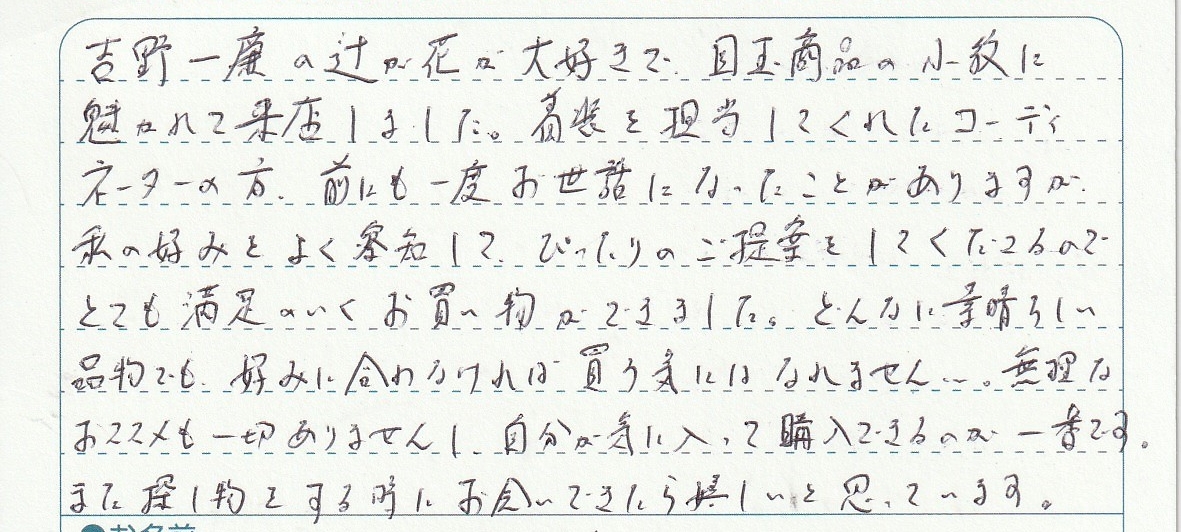 吉野一廉の辻が花が大好きで、目玉商品の小紋に
魅かれて来店しました。着装を担当してくれたコーディ
ネーターの方、前にも一度お世話になったことがありますが、
私の好みをよく察知して、ぴったりのご提案をしてくださるので
とても満足のいくお買い物ができました。どんなに素晴らしい
品物でも、好みに合わなければ買う気にはなれません…。無理な
おススメも一切ありませんし、自分が気に入って購入できるのが一番です。
また探し物をする時にお会いできたら嬉しいと思っています。
お名前